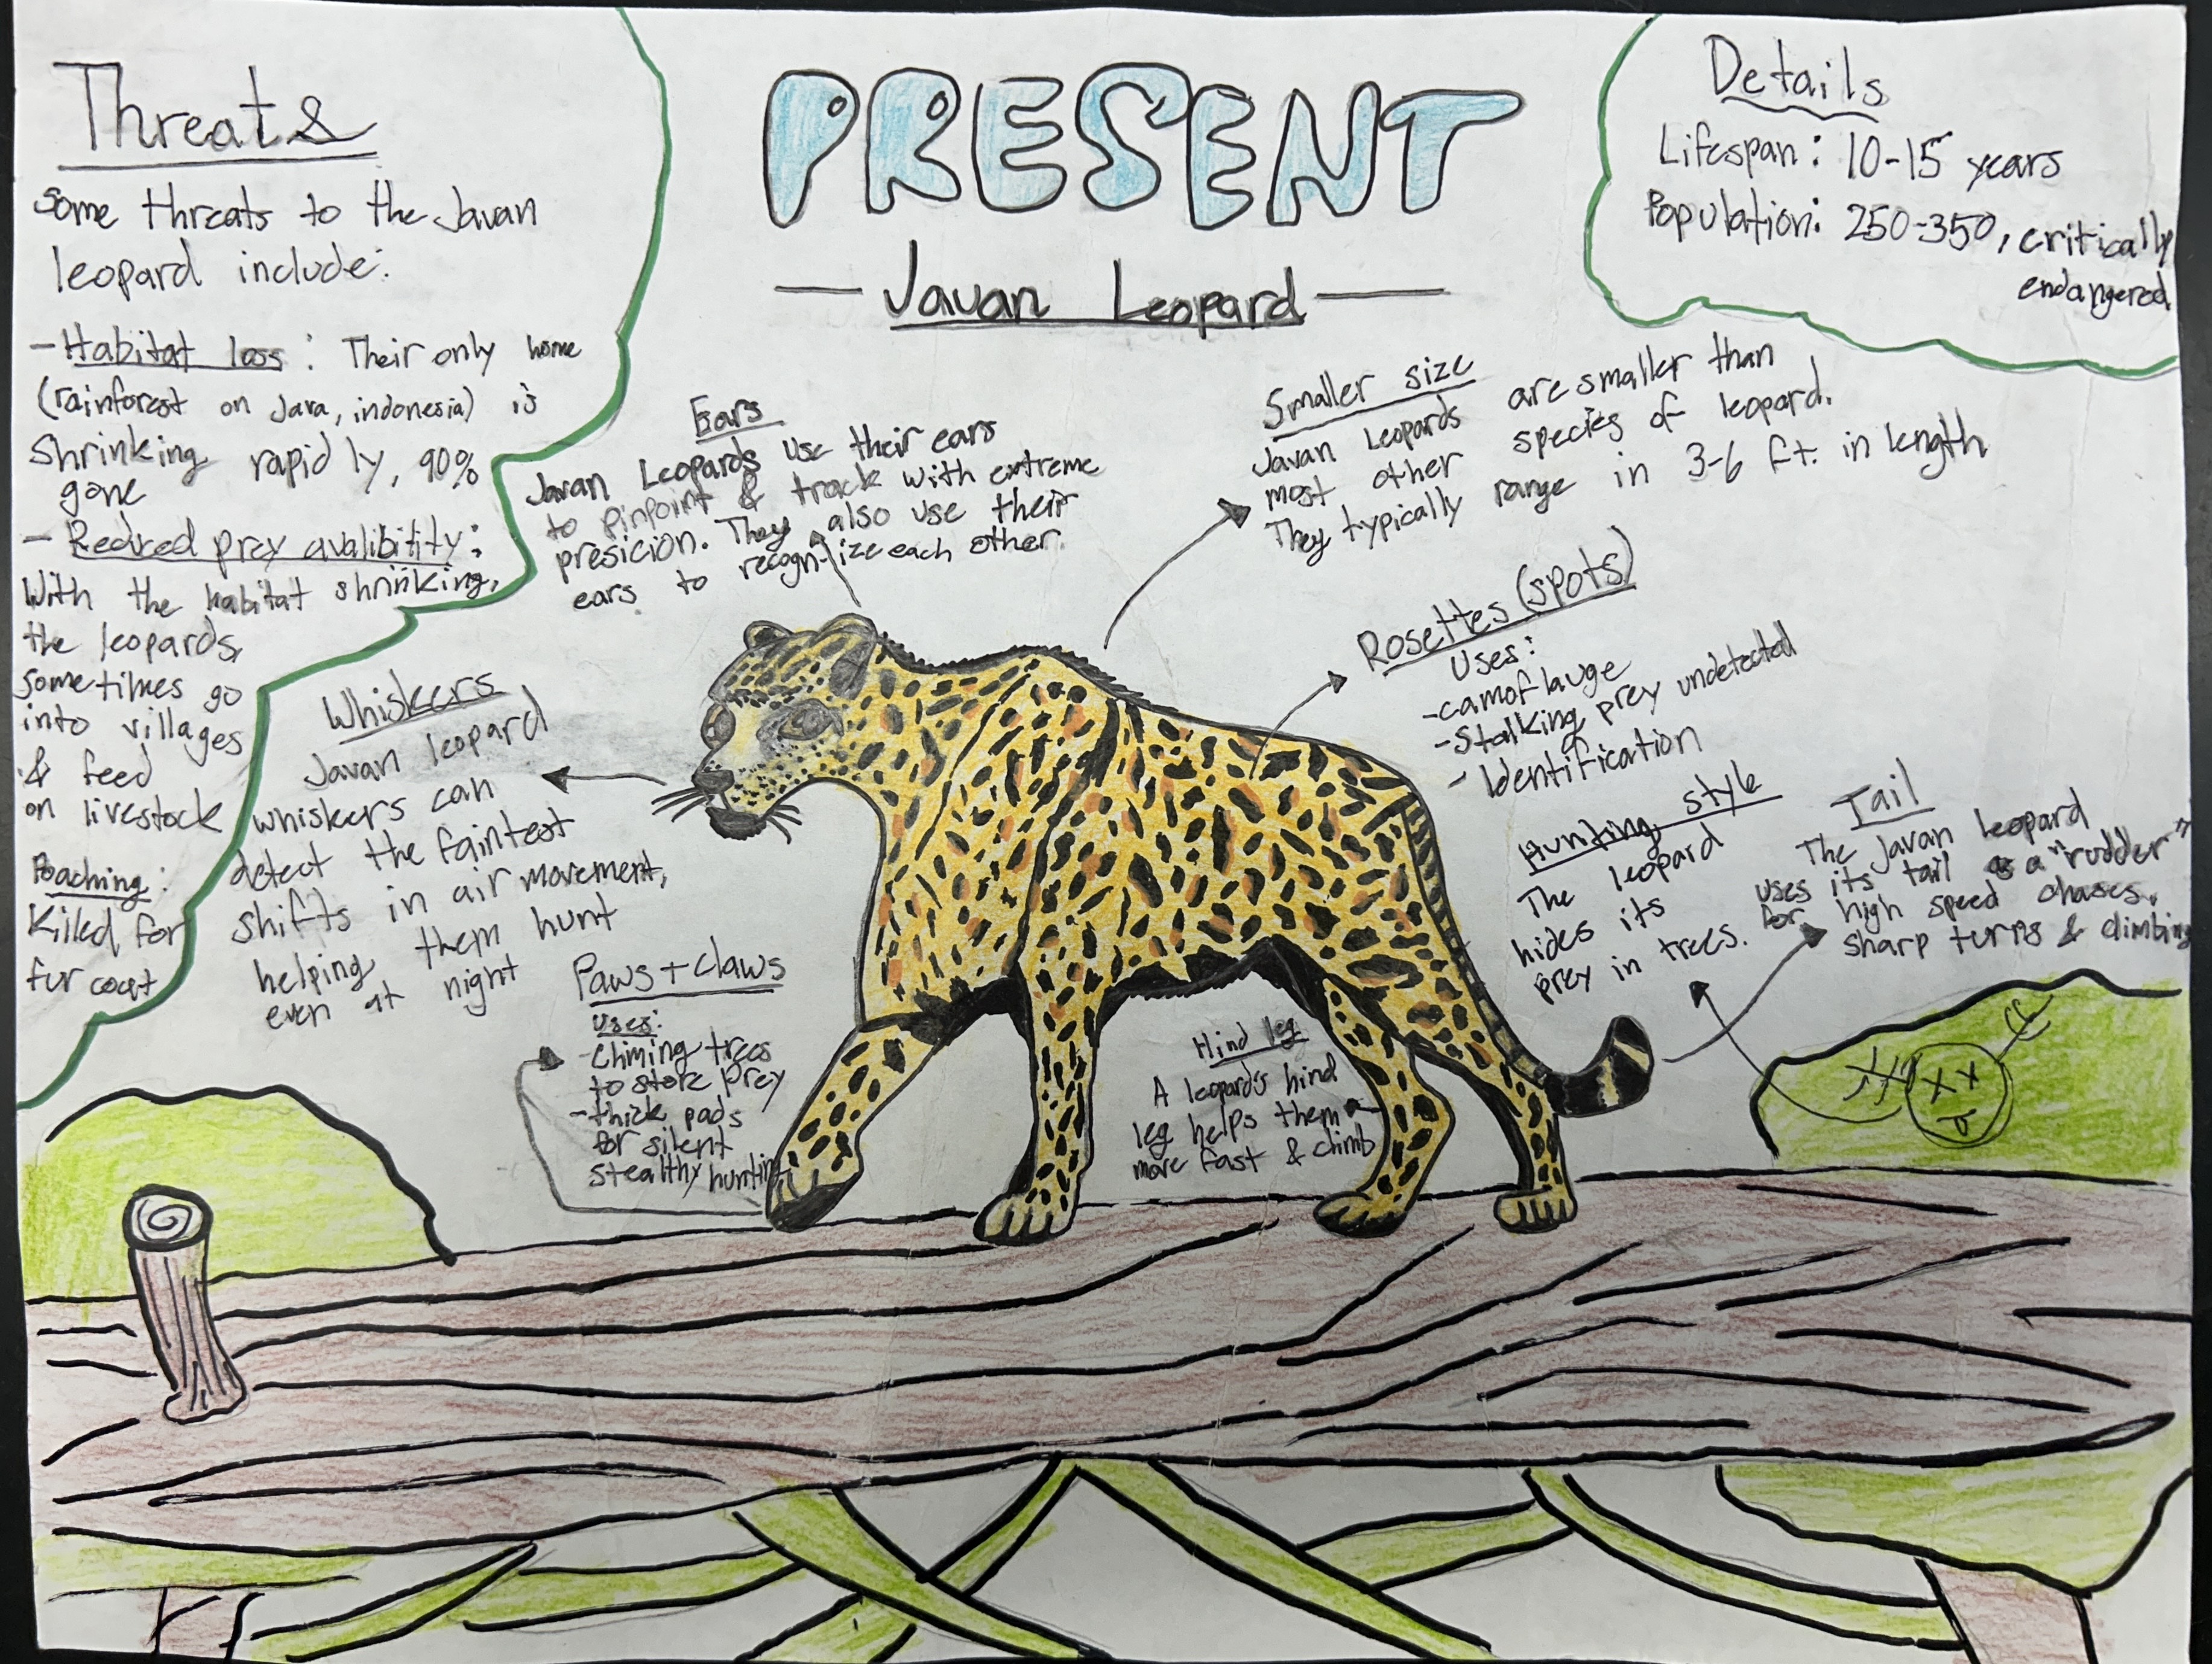 PRESENT
Javan Leopard
Threats
Some threats to the Javan
leopard include:
- Habitat loss: Their only home
(rainforest on Java, indonesia) is
shrinking rapidly, 90%
gone
- Reduced prey avalibitity:
With the habitat shrinking,
the leopards,
sometimes go
into villages
& feed
on livestock
Poaching:
Killed for
fur coat
Details
Lifespan: 10-15 years
Population: 250-350, critically
endangered
Ears
Javan Leopards use their ears
to pinpoint & track with extreme
presicion. They also use their
ears to recognize each other.
Smaller size
Javan Leopards are smaller than
most other species of leopard.
They typically range in 3-6 ft. in length
Rosettes (spots)
Uses:
-camoflauge
-Stalking prey undetected
- Identification
Whiskers
Javan leopard
whiskers can
detect the faintest
shifts in air movement,
helping them hunt
even at night
Paws + Claws
uses:
-Climing trees
to store prey
-thick pads
for silent
stealthy hunting
Hind leg
A leopard's hind
leg helps them
move fast & climb
Hunting style
The leopard
hides its
prey in trees.
Tail
The Javan leopard
uses its tail as a "rudder"
for high speed chases,
sharp turns & climbing